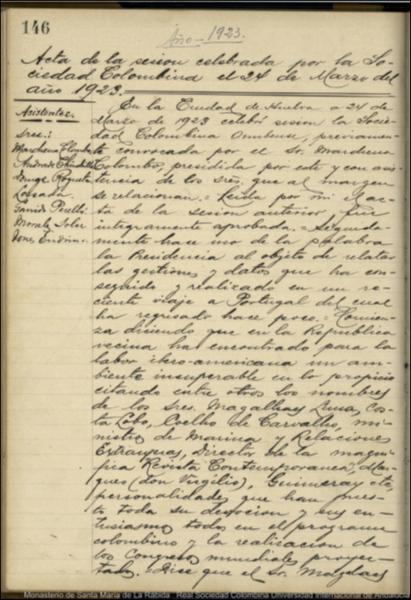 146
Año - 1923.
Acta de la sesion celebrada por la So-
ciedad Colombina el 24 de Marzo del
año 1923.
Asistentes.
Sres.:
Marchena Colombo
Garrido Perelló
Morales
En la Ciudad de Huelva a 24 de
Marzo de 1923 celebró sesion la Socie-
dad Colombina Onubense, previamen-
te convocada por el Sr. Marchena
Colombo, presidida por este y con asis-
tencia de los sres. que al margen
se relacionan. = Leida por mi el ac-
ta de la sesion anterior, fué
integramente aprobada. = Seguida-
mente hace uso de la palabra
la Presidencia al objeto de relatar
las gestiones y datos que ha con-
seguido y realizado en un re-
ciente viaje a Portugal del cual
ha regresado hace poco. = Comien-
za diciendo que en la Republica
vecina ha encontrado para la
labor ibero-americana un am-
biente insuperable en lo propicio
citando entre otros los nombres
de los sres. Magalhaes Lima, Cos-
ta Lobo, Coelho de Carvalho, mi-
nistros de Marina y Relaciones
Extranjeras, director de la magni-
fica Revista Contemporanea, Mar-
ques (don Virgilio), Guimeray etc,
personalidades que han pues-
to toda su devocion y su en-
tusiasmo todo en el programa
colombino y la realizacion de
los Congresos mundiales proyec-
tados. = Dice que el Sr.
Monasterio de Santa María de La Rábida : Real Sociedad Colombina Universidad Internacional de Andalucía